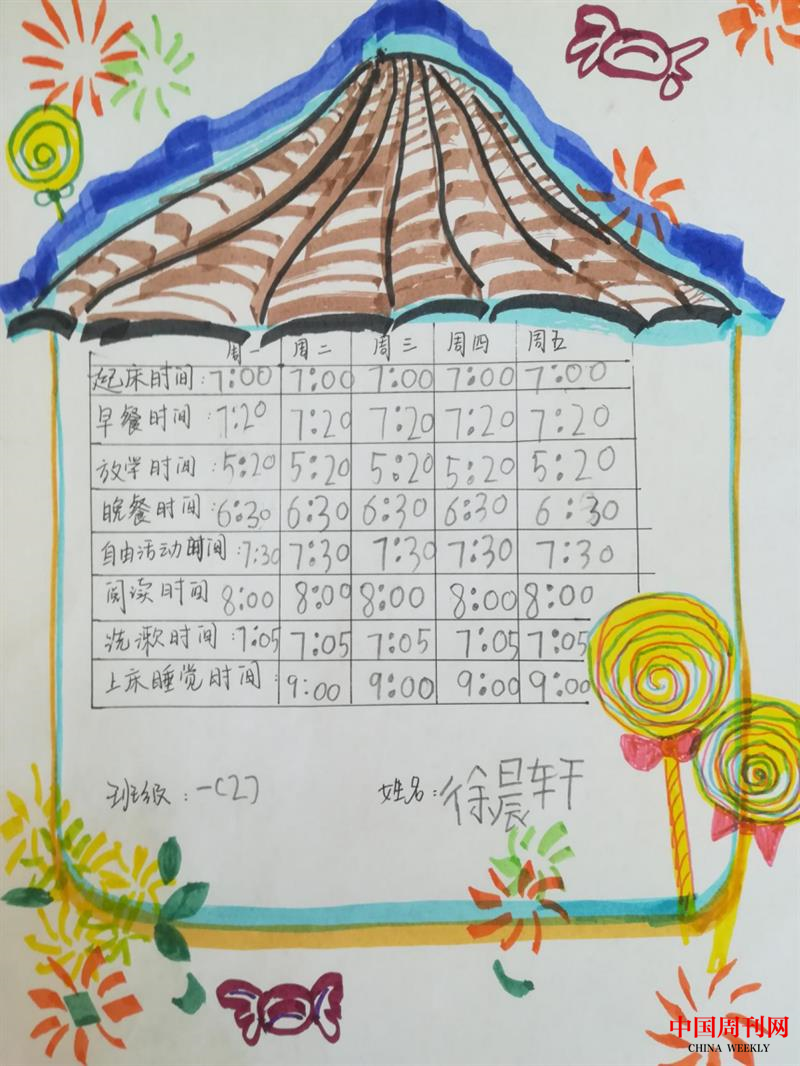 周一 周二 周三 周四 周五
起床时间: 7:00 7:00 7:00 7:00 7:00
早餐时间: 7:20 7:20 7:20 7:20 7:20
放学时间: 5:20 5:20 5:20 5:20 5:20
晚餐时间: 6:30 6:30 6:30 6:30 6:30
自由活动时间: 7:30 7:30 7:30 7:30 7:30
阅读时间 8:00 8:00 8:00 8:00 8:00
洗漱时间: 7:05 7:05 7:05 7:05 7:05
上床睡觉时间: 9:00 9:00 9:00 9:00
班级: 一(2) 姓名: 徐晨轩
中国周刊网
CHINA WEEKLY